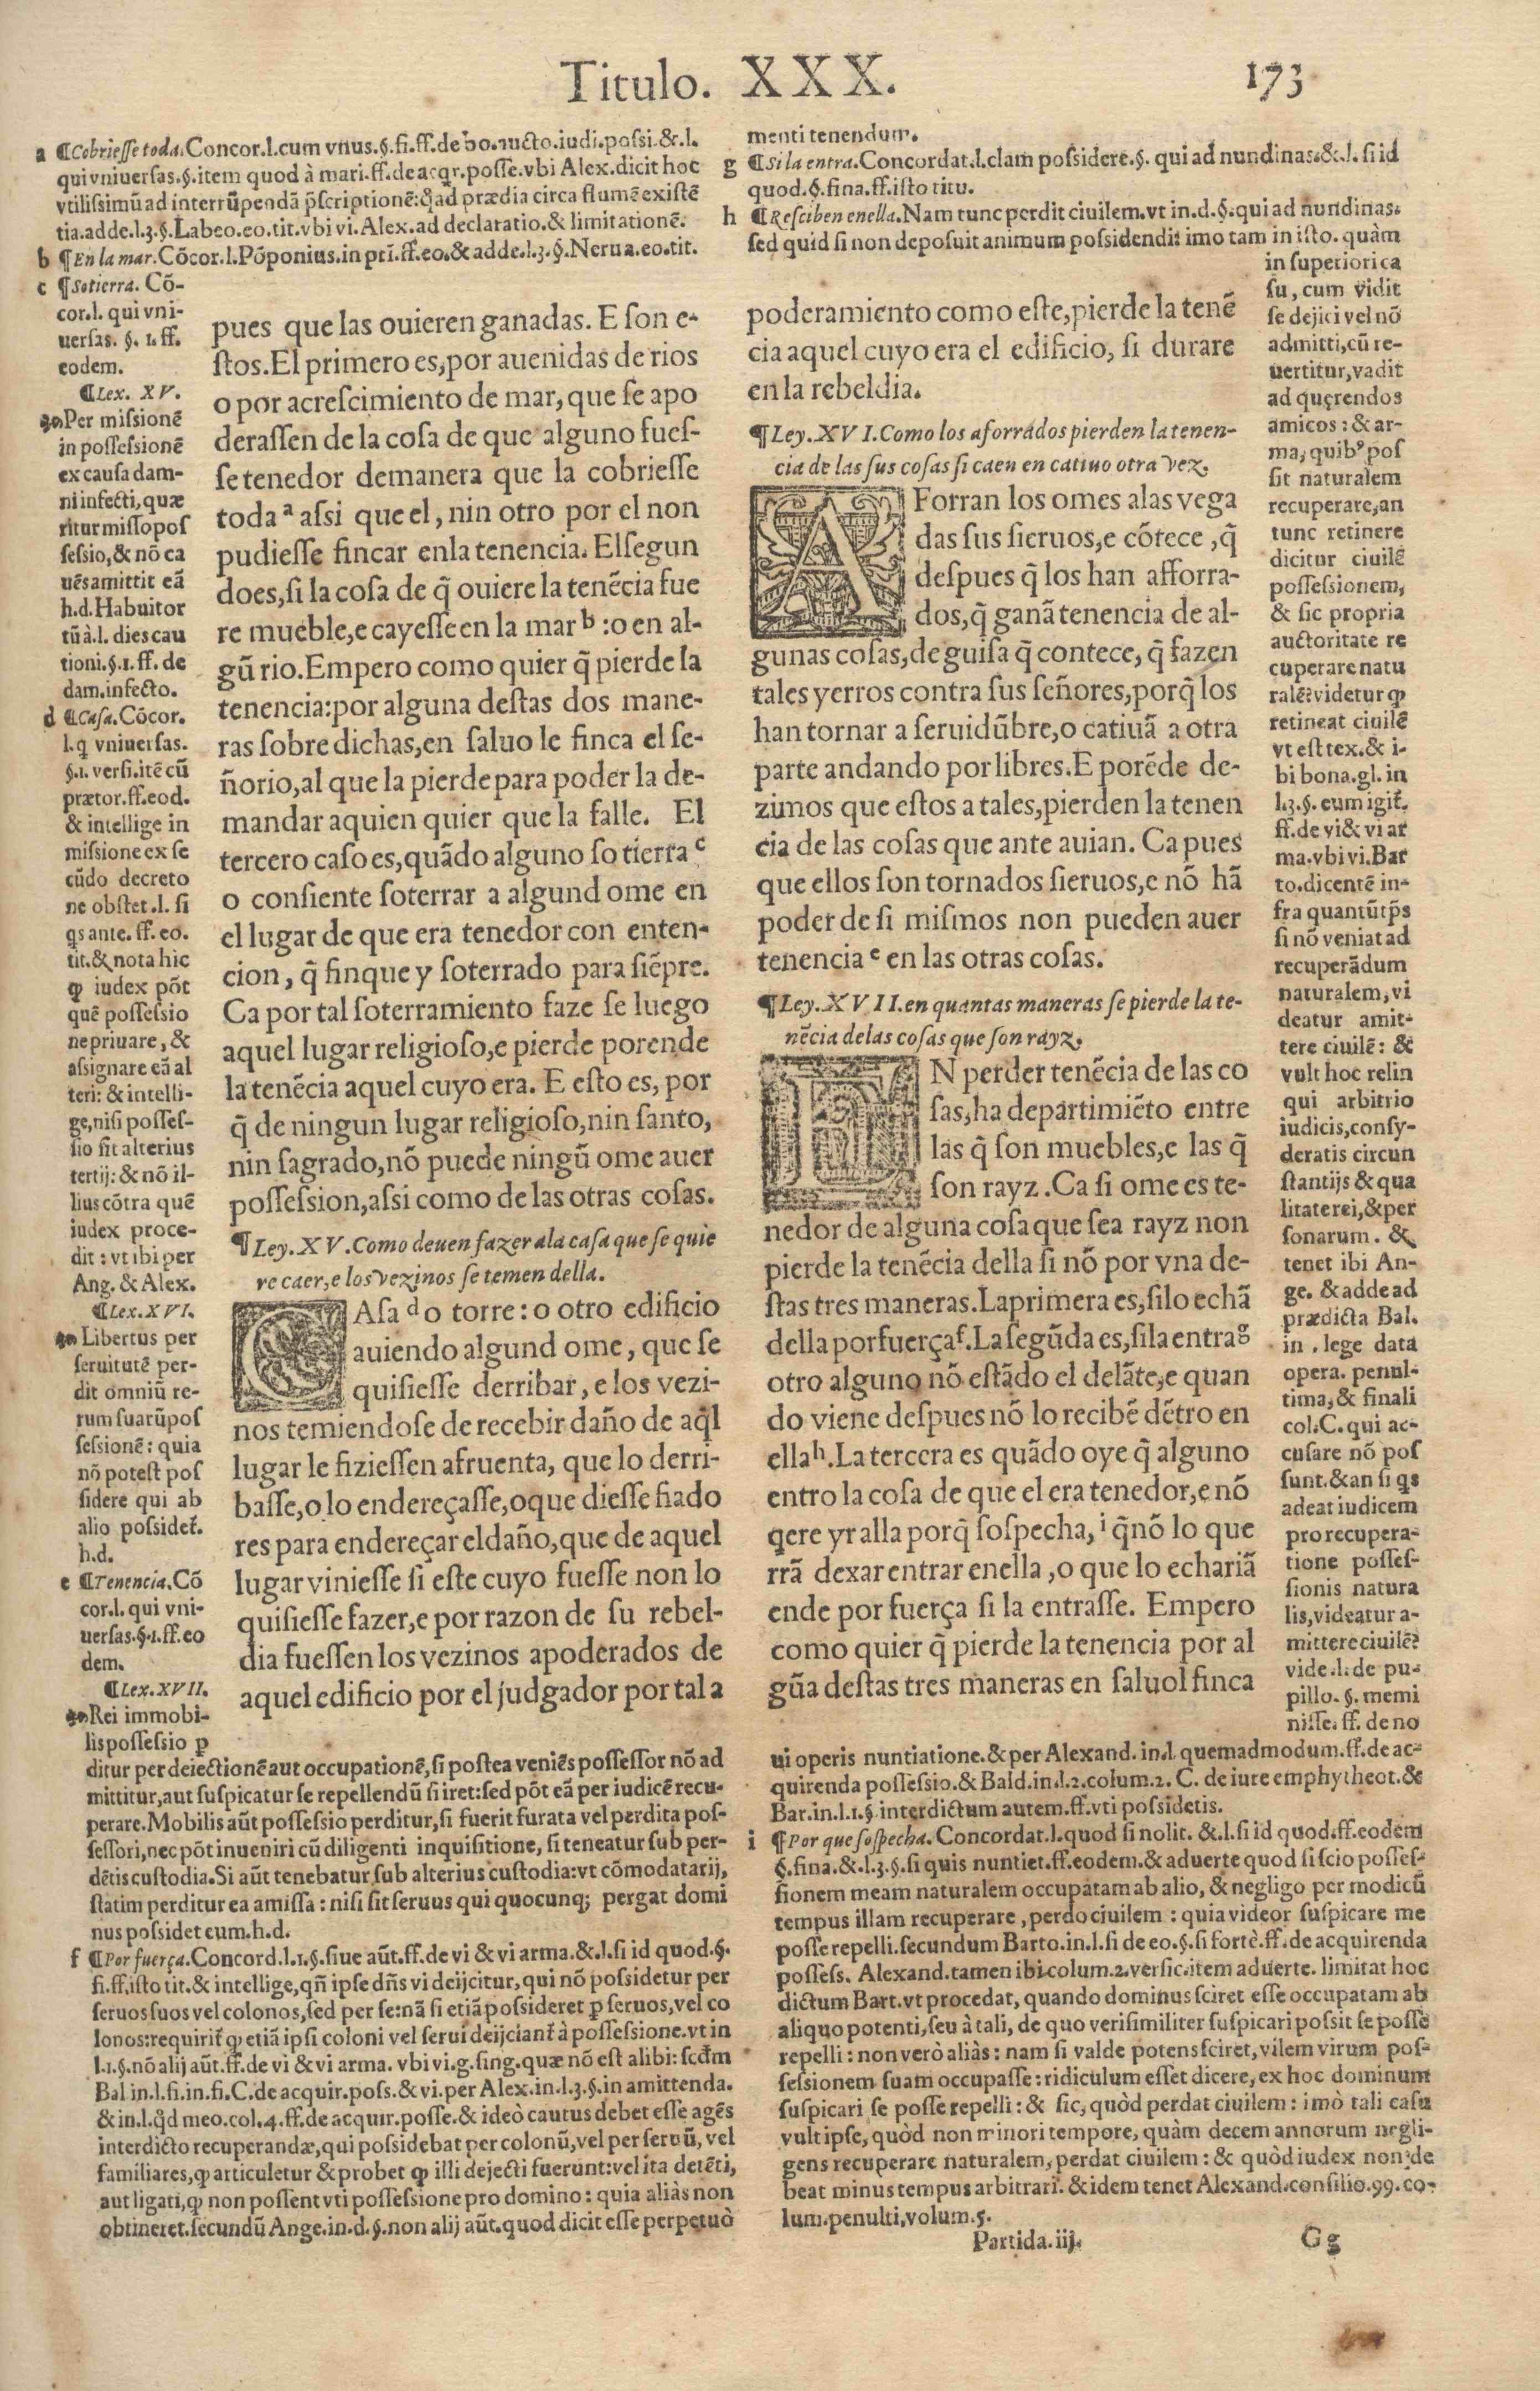 Titulo. XXX. 173
a ¶Cobriesse toda. Concor.l.cum vnus.§.fi.ff.de bo.aucto.iudi.possi.&.l.
qui vniuersas.§.item quod à mari.ff.de acqr.posse.vbi Alex.dicit hoc
vtilissimũ ad interrũpendã p̃scriptionẽ: q̃ad prædia circa flumẽ existẽ
tia.adde.l.3.§.Labeo.eo.tit.vbi vi.Alex.ad declaratio.& limitationẽ.
b ¶En la mar. Cõcor.l.Põponius.in pri.ff.eo.& adde.l.3.§.Nerua.eo.tit.
c ¶Sotierra. Cõ-
cor.l. qui vni-
uersas. §. 1. ff.
eodem.
¶Lex. XV.
Per missionẽ
in possessionẽ
ex causa dam-
ni infecti, quæ
ritur missopos
sessio, & nõ ca
uẽs amittit eã
h.d. Habuitor
tũ à.l. dies cau
tioni.§.1.ff. de
dam.infecto.
d ¶Casa. Cõcor.
l.q̃ vniuersas.
§.1. versi.itẽ cũ
prætor.ff.eod.
& intellige in
missione ex se
cũdo decreto
ne obstet.l. si
qs ante. ff. eo.
tit.& nota hic
ꝙ iudex põt
quẽ possessio
ne priuare, &
assignare eã al
teri: & intelli-
ge, nisi posses-
sio sit alterius
tertij: & nõ il-
lius cõtra quẽ
iudex proce-
dit : vt ibi per
Ang. & Alex.
¶Lex.XVI.
Libertus per
seruitutẽ per-
dit omniũ re-
rum suarũ pos
sessionẽ: quia
nõ potest pos
sidere qui ab
alio possidet̃.
h.d.
e ¶Tenencia. Cõ
cor.l. qui vni-
uersas.§.1.ff.eo
dem.
¶Lex.XVII.
Rei immobi-
lis possessio ꝑ
pues que las ouieren ganadas. E son e-
stos. El primero es, por auenidas de rios
o por acrescimiento de mar, que se apo
derassen de la cosa de que alguno fues-
se tenedor demanera que la cobriesse
toda a assi que el, nin otro por el non
pudiesse fincar enla tenencia. El segun
do es, si la cosa de q̃ ouiere la tenẽcia fue
re mueble, e cayesse en la mar b : o en al-
gũ rio. Empero como quier q̃ pierde la
tenencia: por alguna destas dos mane-
ras sobre dichas, en saluo le finca el se-
ñorio, al que la pierde para poder la de-
mandar a quien quier que la falle. El
tercero caso es, quãdo alguno so tierra c
o consiente soterrar a algund ome en
el lugar de que era tenedor con enten-
cion, q̃ finque y soterrado para siẽpre.
Ca por tal soterramiento faze se luego
aquel lugar religioso, e pierde porende
la tenẽcia aquel cuyo era. E esto es, por
q̃ de ningun lugar religioso, nin santo,
nin sagrado, nõ puede ningũ ome auer
possession, assi como de las otras cosas.
¶Ley. XV. Como deuen fazer ala casa que se quie
re caer, e los vezinos se temen della.
CAsa d o torre: o otro edificio
auiendo algund ome, que se
quisiesse derribar, e los vezi-
nos temiendose de recebir daño de aq̃l
lugar le fiziessen afruenta, que lo derri-
basse, o lo endereçasse, o que diesse fiado
res para endereçar el daño, que de aquel
lugar viniesse si este cuyo fuesse non lo
quisiesse fazer, e por razon de su rebel-
dia fuessen los vezinos apoderados de
aquel edificio por el judgador por tal a
ditur per deiectionẽ aut occupationẽ, si postea veniẽs possessor nõ ad
mittitur, aut suspicatur se repellendũ si iret: sed põt eã per iudicẽ recu-
perare. Mobilis aũt possessio perditur, si fuerit furata vel perdita pos-
sessori, nec põt inueniri cũ diligenti inquisitione, si teneatur sub per-
dẽtis custodia. Si aũt tenebatur sub alterius custodia: vt cõmodatarij,
statim perditur ea amissa : nisi sit seruus qui quocunq; pergat domi
nus possidet eum.h.d.
f ¶Por fuerça. Concord.l.1.§.siue aũt.ff.de vi & vi arma.&.l.si id quod.§.
fi.ff.isto tit.& intellige, qñ ipse dñs vi deijcitur, qui nõ possidetur per
seruos suos vel colonos, sed per se: nã si etiã possideret ꝑ seruos, vel co
lonos: requirit̃ ꝙ etiã ipsi coloni vel serui deijciant̃ à possessione. vt in
l.1.§.nõ alij aũt.ff.de vi & vi arma. vbi vi.g.sing.quæ nõ est alibi: scd̃m
Bal in.l.fi.in.fi.C.de acquir.poss.& vi.per Alex.in.l.3.§.in amittenda.
& in.l.q̃d meo.col.4.ff.de acquir.posse.& ideò cautus debet esse agẽs
interdicto recuperandæ, qui possidebat per colonũ, vel per seruũ, vel
familiares, ꝙ articuletur & probet ꝙ illi dejecti fuerunt: vel ita detẽti,
aut ligati, ꝙ non possent vti possessione pro domino : quia aliàs non
obtineret. secundũ Ange.in.d.§.non alij aũt.quod dicit esse perpetuò
menti tenendum.
g ¶Si la entra. Concordat.l.clam possidere.§. qui ad nundinas.&.l.si id
quod.§.fina.ff.isto titu.
h ¶Resciben enella. Nam tunc perdit ciuilem.vt in.d.§.qui ad nundinas.
sed quid si non deposuit animum possidendi: imo tam in isto. quàm
in superiori ca
su, cum vidit
se dejici vel nõ
admitti, cũ re-
uertitur, vadit
ad quęrendos
amicos : & ar-
ma, quibꝰ pos
sit naturalem
recuperare, an
tunc retinere
dicitur ciuilẽ
possessionem,
& sic propria
auctoritate re
cuperare natu
ralẽ? videtur ꝙ
retineat ciuilẽ
vt est tex.& i-
bi bona.gl. in
l.3.§. cum igit̃.
ff.de vi & vi ar
ma.vbi vi. Bar
to.dicentẽ in-
fra quantũtp̃s
si nõ veniat ad
recuperãdum
naturalem, vi
deatur amit-
tere ciuilẽ: &
vult hoc relin
qui arbitrio
iudicis, consy-
deratis circun
stantijs & qua
litate rei, & per
sonarum. &
tenet ibi An-
ge. & adde ad
prædicta Bal.
in . lege data
opera. penul-
tima, & finali
col. C. qui ac-
cusare nõ pos
sunt. & an si qs
adeat iudicem
pro recupera-
tione posses-
sionis natura
lis, videatur a-
mittere ciuilẽ?
vide.l. de pu-
pillo. §. memi
nisse. ff. de no
poderamiento como este, pierde la tenẽ
cia aquel cuyo era el edificio, si durare
en la rebeldia.
¶Ley. XVI. Como los aforrados pierden la tenen-
cia de las sus cosas si caen en catiuo otra vez.
AForran los omes alas vega
das sus sieruos, e cõtece, q̃
despues q̃ los han afforra-
dos, q̃ ganã tenencia de al-
gunas cosas, de guisa q̃ contece, q̃ fazen
tales yerros contra sus señores, porq̃ los
han tornar a seruidũbre, o catiuã a otra
parte andando por libres. E porẽde de-
zimos que estos a tales, pierden la tenen
cia de las cosas que ante auian. Ca pues
que ellos son tornados sieruos, e nõ hã
poder de si mismos non pueden auer
tenencia e en las otras cosas.
¶Ley. XVII. en quantas maneras se pierde la te-
nẽcia delas cosas que son rayz.
EN perder tenẽcia de las co
sas, ha departimiẽto entre
las q̃ son muebles, e las q̃
son rayz. Ca si ome es te-
nedor de alguna cosa que sea rayz non
pierde la tenẽcia della si nõ por vna de-
stas tres maneras. La primera es, si lo echã
della por fuerça f. La segũda es, si la entra g
otro alguno nõ estãdo el delãte, e quan
do viene despues nõ lo recibẽ dẽtro en
ella h. La tercera es quãdo oye q̃ alguno
entro la cosa de que el era tenedor, e nõ
qere yr alla porq̃ sospecha, i q̃ nõ lo que
rrã dexar entrar enella, o que lo echariã
ende por fuerça si la entrasse. Empero
como quier q̃ pierde la tenencia por al
gũa destas tres maneras en saluol finca
ui operis nuntiatione.& per Alexand. in.l quemadmodum.ff.de ac-
quirenda possessio.& Bald.in.l.2.colum.2. C. de iure emphytheot.&
Bar.in.l.1.§.interdictum autem.ff.vti possidetis.
i ¶Por que sospecha. Concordat.l.quod si nolit. &.l.si id quod.ff.eodem
§.fina.&.l.3.§.si quis nuntiet.ff.eodem.& aduerte quod si scio posses-
sionem meam naturalem occupatam ab alio, & negligo per modicũ
tempus illam recuperare, perdo ciuilem : quia videor suspicare me
posse repelli. secundum Barto.in.l.si de eo.§.si fortè.ff.de acquirenda
possess. Alexand.tamen ibi.colum.2.versic.item aduerte. limitat hoc
dictum Bart. vt procedat, quando dominus sciret esse occupatam ab
aliquo potenti, seu à tali, de quo verisimiliter suspicari possit se posse
repelli : non verò aliàs : nam si valde potens sciret, vilem virum pos-
sessionem suam occupasse: ridiculum esset dicere, ex hoc dominum
suspicari se posse repelli : & sic, quòd perdat ciuilem : imò tali casu
vult ipse, quòd non minori tempore, quàm decem annorum negli-
gens recuperare naturalem, perdat ciuilem : & quòd iudex non de
beat minus tempus arbitrari. & idem tenet Alexand.consilio.99.co-
lum.penulti.volum.5.
Partida.iij. Gg